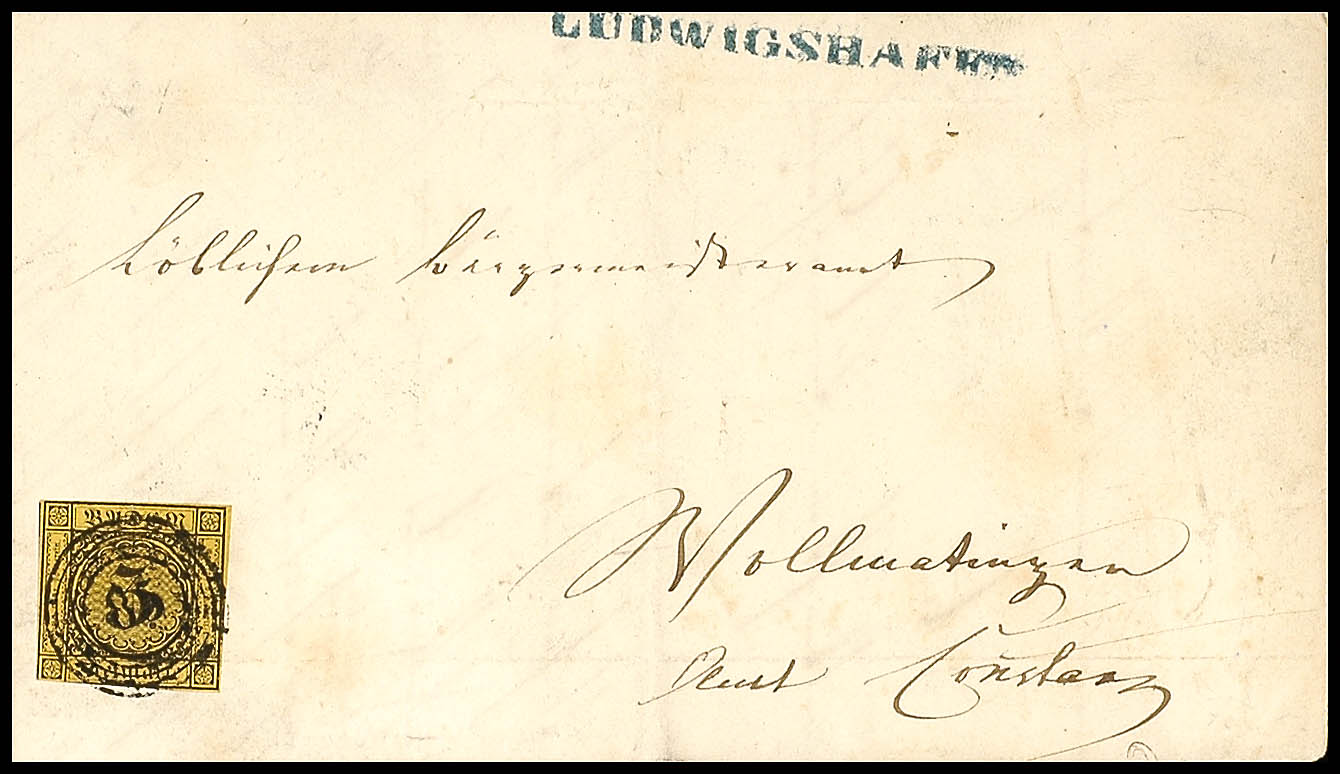 LUDWIGSHAFEN
Löblichem Bürgermeisteramt
Wollmatingen
Amt Constanz
BADEN
3